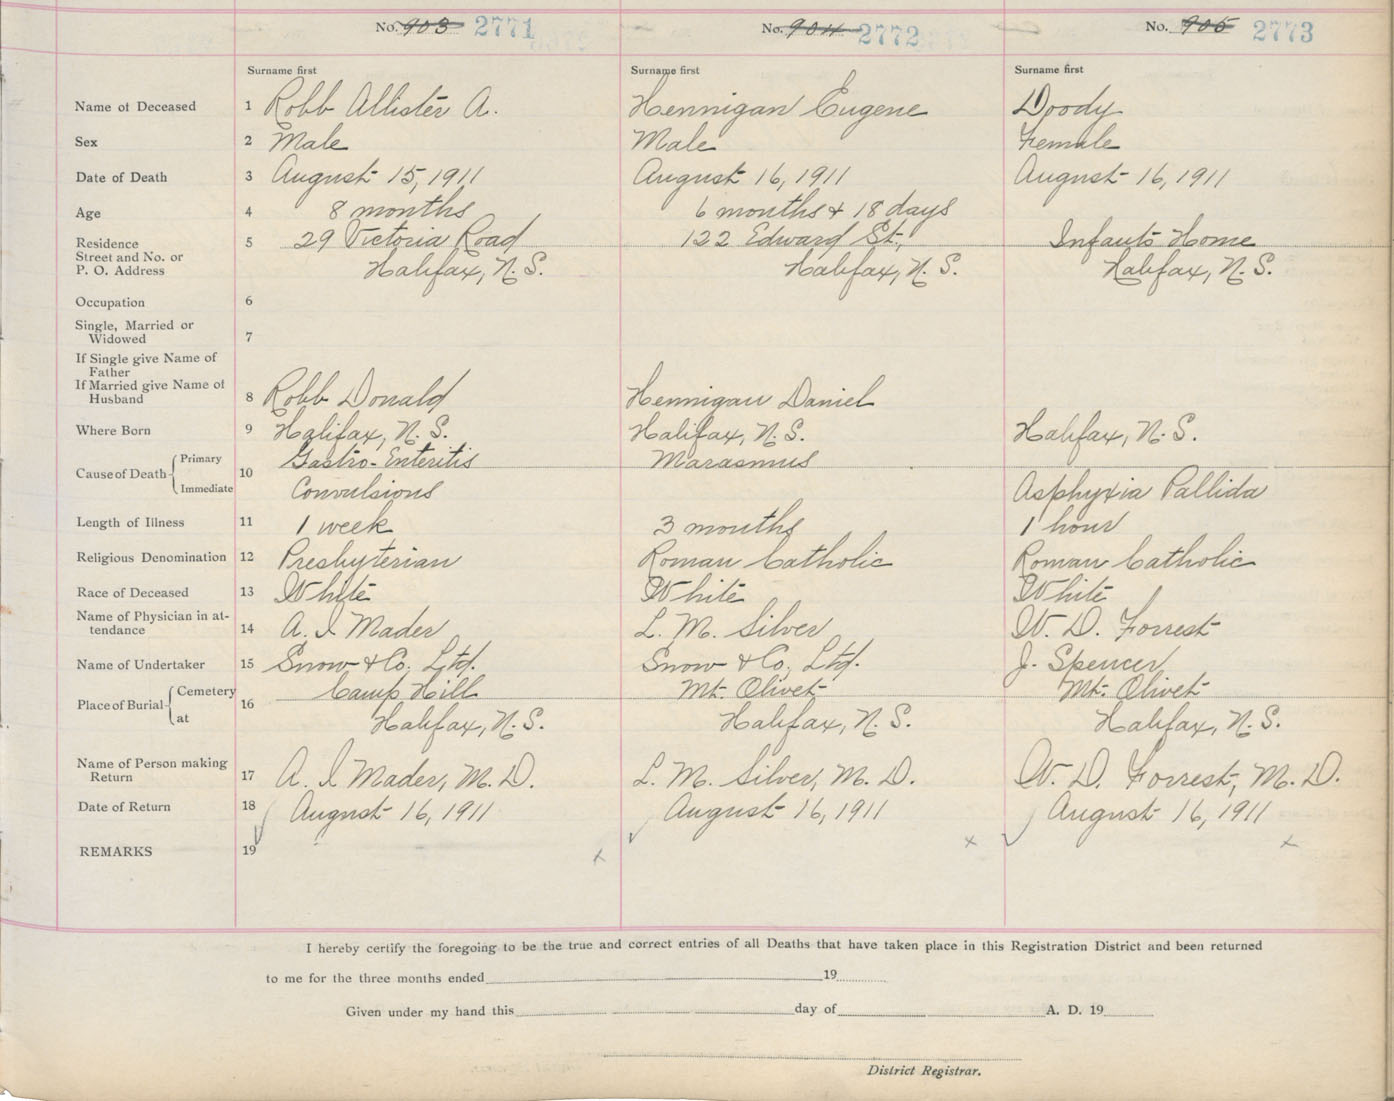 No. 903 2771 No. 904 2772 No. 905 2773
Surname first Surname first Surname first
Name of Deceased 1 Robb Allister A. Hennigan Eugene Doody
Sex 2 Male Male Female
Date of Death 3 August 15, 1911 August 16, 1911 August 16, 1911
Age 4 8 months 6 months & 18 days
Residence 5 29 Victoria Road 122 Edward St., Infants Home
Street and No. or
P. O. Address Halifax, N.S. Halifax, N.S. Halifax, N.S.
Occupation 6
Single, Married or
Widowed 7
If Single give Name of
Father
If Married give Name of
Husband 8 Robb Donald Hennigan Daniel
Where Born 9 Halifax, N.S. Halifax, N.S. Halifax, N.S.
Cause of Death Primary 10 Gastro-Enteritis Marasmus
Immediate Convulsions Asphyxia Pallida
Length of Illness 11 1 week 3 months 1 hour
Religious Denomination 12 Presbyterian Roman Catholic Roman Catholic
Race of Deceased 13 White White White
Name of Physician in at-
tendance 14 A. I Mader L. M. Silver W. D. Forrest
Name of Undertaker 15 Snow & Co. Ltd. Snow & Co. Ltd. J. Spencer
Place of Burial Cemetery 16 Camp Hill Mt. Olivet Mt. Olivet
at Halifax, N.S. Halifax, N.S. Halifax, N.S.
Name of Person making
Return 17 A. I Mader, M.D. L. M. Silver, M.D. W. D. Forrest, M.D.
Date of Return 18 August 16, 1911 August 16, 1911 August 16, 1911
REMARKS 19 x x x
I hereby certify the foregoing to be the true and correct entries of all Deaths that have taken place in this Registration District and been returned
to me for the three months ended 19
Given under my hand this day of A. D. 19
District Registrar.